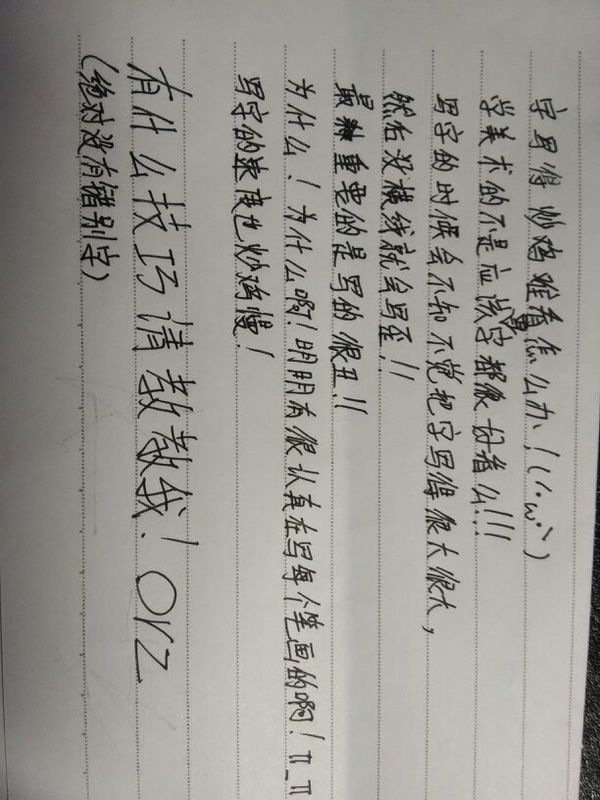 字写得炒鸡难看怎么办！(´･ω･`)
学美术的不是应该写字都很好看么!!!
写字的时候会不知不觉把字写得很大很大，
然后没横线就会写歪!!
最重要的是写的很丑!!
为什么！为什么啊！明明有很认真在写每个笔画的啊！π_π
写字的速度也炒鸡慢！
有什么技巧请教教我！Orz
(绝对没有错别字)